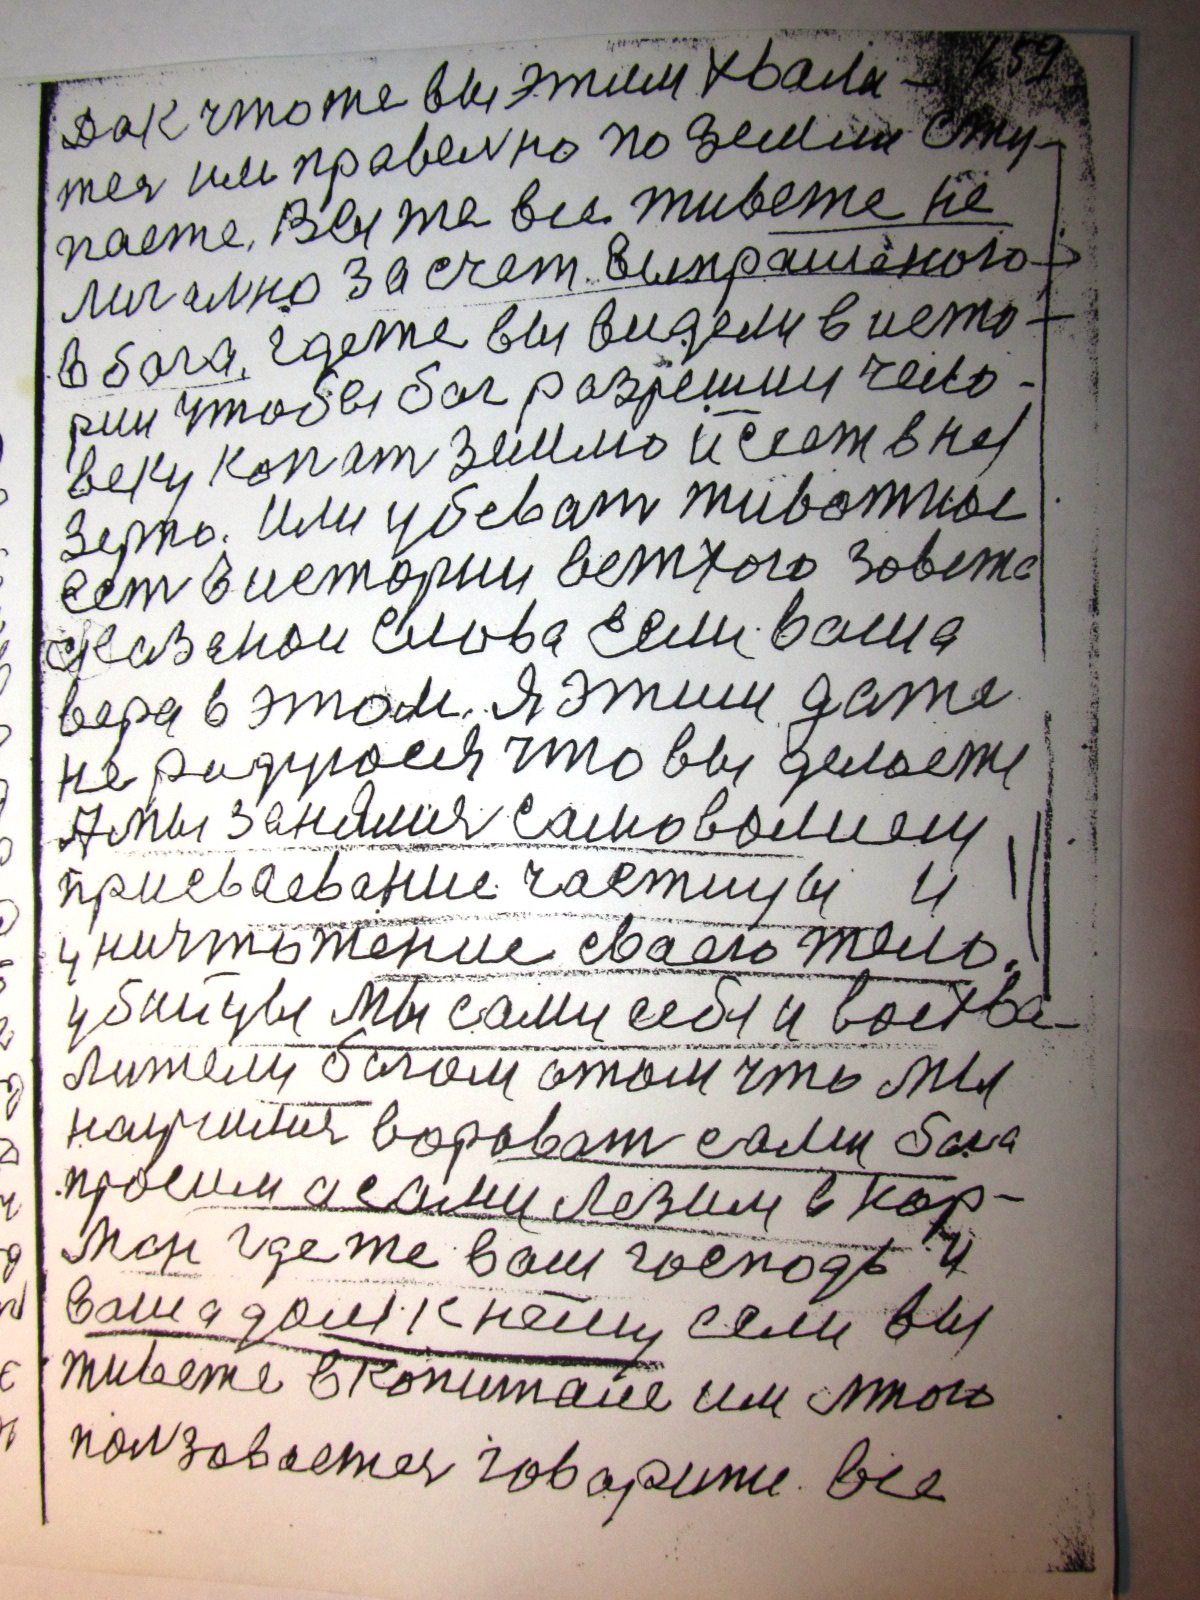 159
Дак чтоже вы этим хвали-
теся или правелно по земли сту-
паете. Вы же все живете не
лигално за счет выпрашеного
в бога. где же вы видели в исто-
рии чтобы бог разрешил чело-
веку копат землю и сеет в ней
зерно. или убеват животное
ест в истории ветхого завета
сказаною слова если ваша
вера в этом. Я этим даже
не радуюся что вы делаете
А мы занялися самоволием
присваевание частицы и
уничтожение сваего тело.
убийцы мы сами себя и восхва-
лижели богом этом что мы
научилися вороват сами бога
просим а сами лезим в кар-
ман где же ваш господь и
ваша долг к нему если вы
живете в капитале им много
ползоваетея говорите все